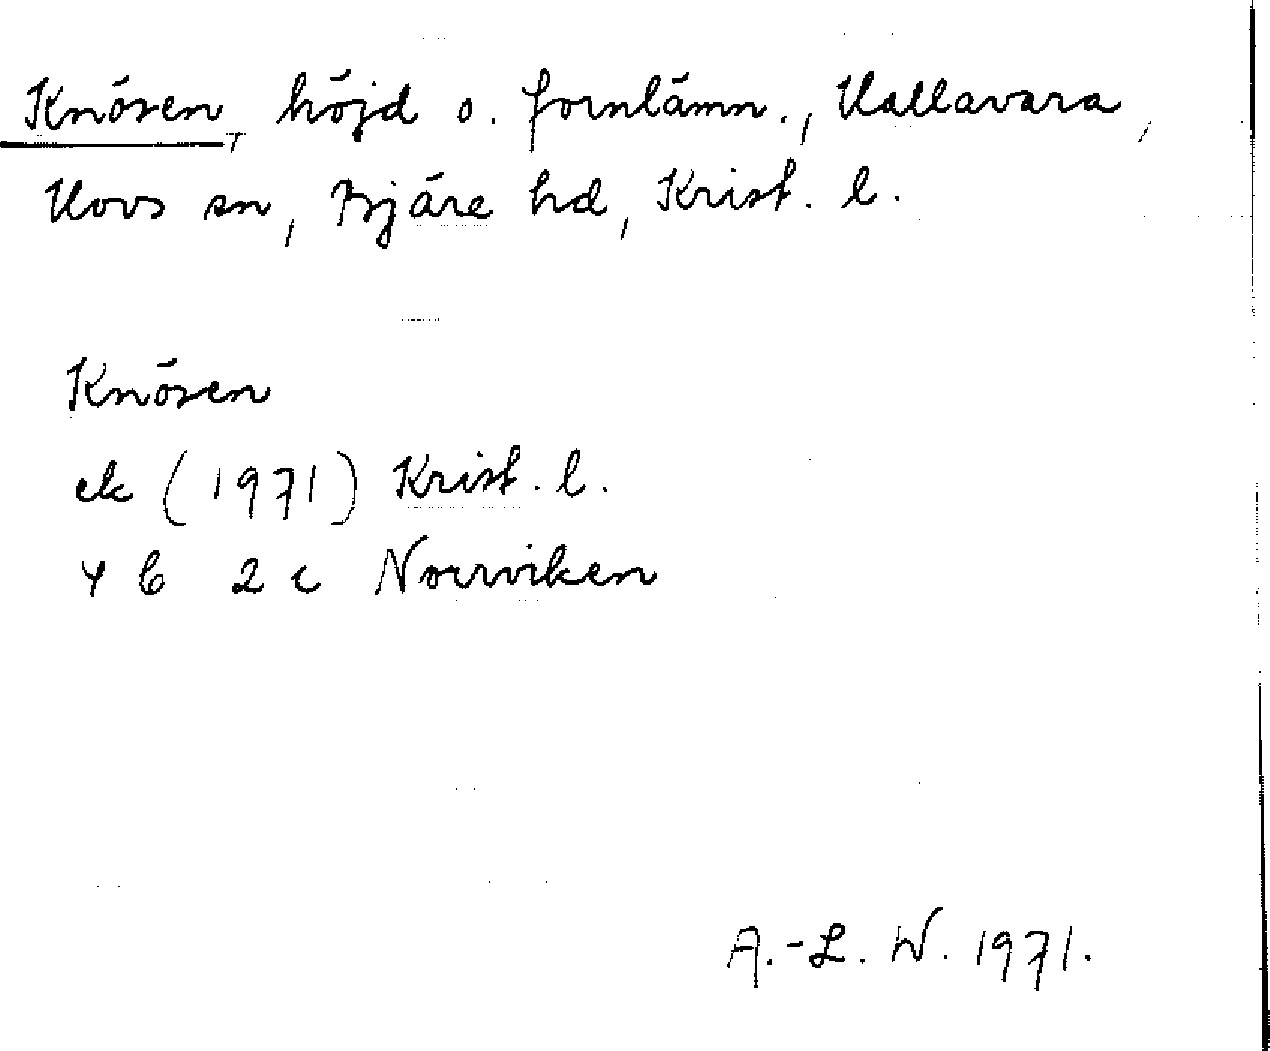 Knösen, höjd o. fornlämn., Hallavara,
Hovs sn, Bjäre hd, Krist. l.
Knösen
ek (1971) Krist. l.
4 C 2 c Norrviken
A.-L. W. 1971.